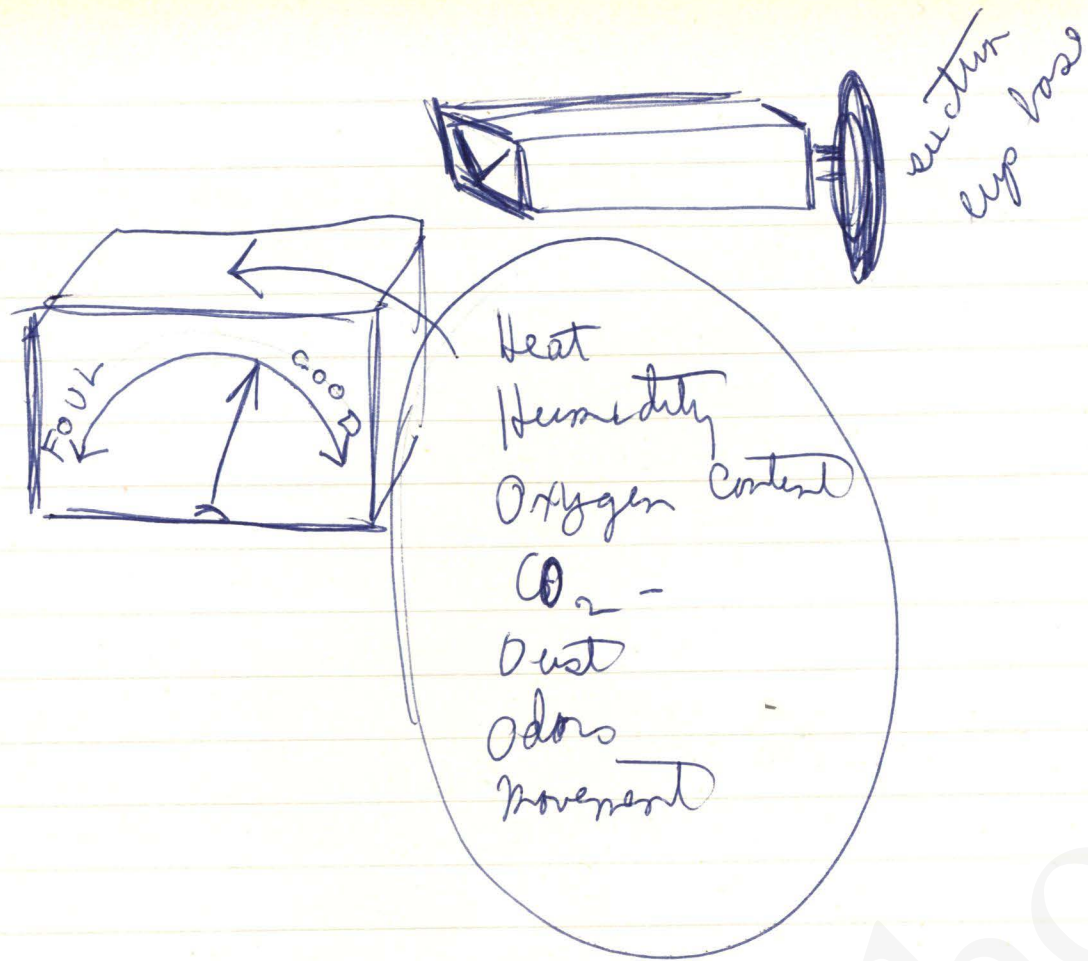 suction
cup base
FOUL
GOOD
Heat
Humidity
Oxygen Content
CO₂ -
Dust
Odors
Movement